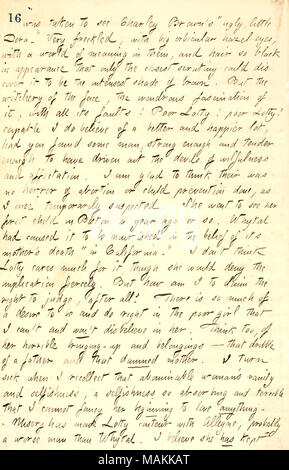 16
was taken to see Charley Brown's "ugly, little
Dora." Very freckled, with big orbicular hazel eyes,
with a world of meaning in them, and hair so black
in appearance that only the closest scrutiny could dis
cover it to be the intensest shade of brown. But the
witchery of the face, the wondrous fascination of
it, with all its faults! Poor Lotty! poor Lotty!
capable I do believe of a better and happier lot
had you found some man, strong enough and tender
enough to have driven out the devils of wilfulness
and affectation. I am glad to think there was
no horror of abortion or child prevention done, as
I once temporarily suspected. She went to see her
first child in Boston a year ago or so. Whytal
had caused it to be nourished in the belief of its
mother's death "in California." I don't think
Lotty cares much for it, though she would deny the
implication fiercely. But how am I to claim the
right to judge, after all! There is so much of
a desire to so and do right in the poor girl that
I can't and won't disbelieve in her. Think too, of
her horrible bringing-up and belongings — that
of a father and that damned mother. I turn
sick when I recollect that abominable woman's vanity
and selfishness, a selfishness so absorbing and terrible
that I cannot fancy her beginning to love anything.
Misery has made Lotty content with Alleyne, probably
a worse man than Whytal. I believe she has kept
alamy
Image ID: MAKKAT
www.alamy.com